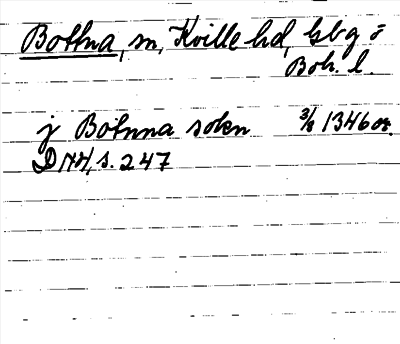 Bottna, sn, Kville hd, Gbg o
Boh. l.
j Botnna sokn 3/8 1346 or.
DN4, s. 247